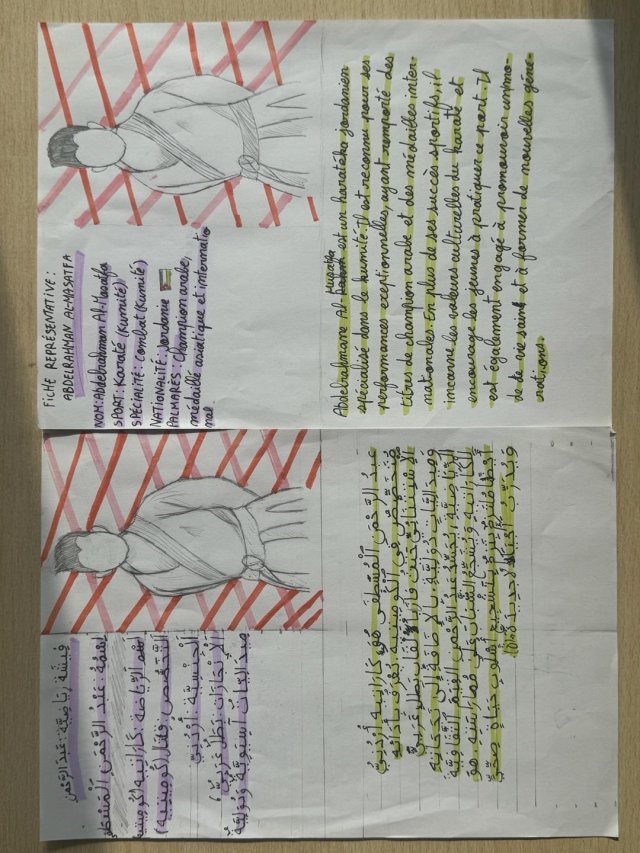 FICHE REPRÉSENTATIVE :
ABDELRAHMAN AL-MASATFA
NOM : Abdelrahman Al-Masatfa
SPORT : Karaté (Kumité)
SPÉCIALITÉ : Combat (Kumité)
NATIONALITÉ : Jordanie
PALMARÈS : Champion arabe,
médaillé asiatique et internatio
nal.
Abdelrahmane Al Musatfa est un karatéka jordanien
spécialisé dans le kumité. Il est reconnu pour ses
performances exceptionnelles, ayant remporté des
titres de champion arabe et des médailles inter-
nationales. En plus de ses succès sportifs, il
incarne les valeurs culturelles du karaté et
encourage les jeunes à pratiquer ce sport. Il
est également engagé à promouvoir un mo-
de de vie saint et à former de nouvelles géné-
rations.
فِيشَة رِيَاضِيَّة : عَبْدُ الرَّحْمٰن
اِسْمُهُ : عَبْدُ الرَّحْمٰنِ الْمَسْطَفَى
الرِّيَاضَة : كَارَاتِيه (كُومِيتِيه)
التَّخَصُّص : قِتَال (كُومِيتِيه)
الْجِنْسِيَّة : أُرْدُنِيّ
الْإِنْجَازَات : بَطَل عَرَبِيّ،
مِيدَالِيَّات آسْيَوِيَّة وَدُوَلِيَّة
عَبْدُ الرَّحْمٰنِ الْمَسْطَفَى هُوَ كَارَاتِيه أُرْدُنِيّ
مُتَخَصِّص فِي الْكُومِيتِيه. يُعْرَف بِأَدَائِهِ
الْاِسْتِثْنَائِيّ، حَيْثُ فَازَ بِأَلْقَاب بَطَل عَرَبِيّ
وَمِيدَالِيَّات دُوَلِيَّة. بِالْإِضَافَةِ إِلَى نَجَاحَاتِهِ
الرِّيَاضِيَّة، يُجَسِّد عَبْدُ الرَّحْمٰن الْقِيَم الثَّقَافِيَّة
لِلْكَارَاتِيه وَيُشَجِّع الشَّبَاب عَلَى مُمَارَسَتِهِ. هُوَ